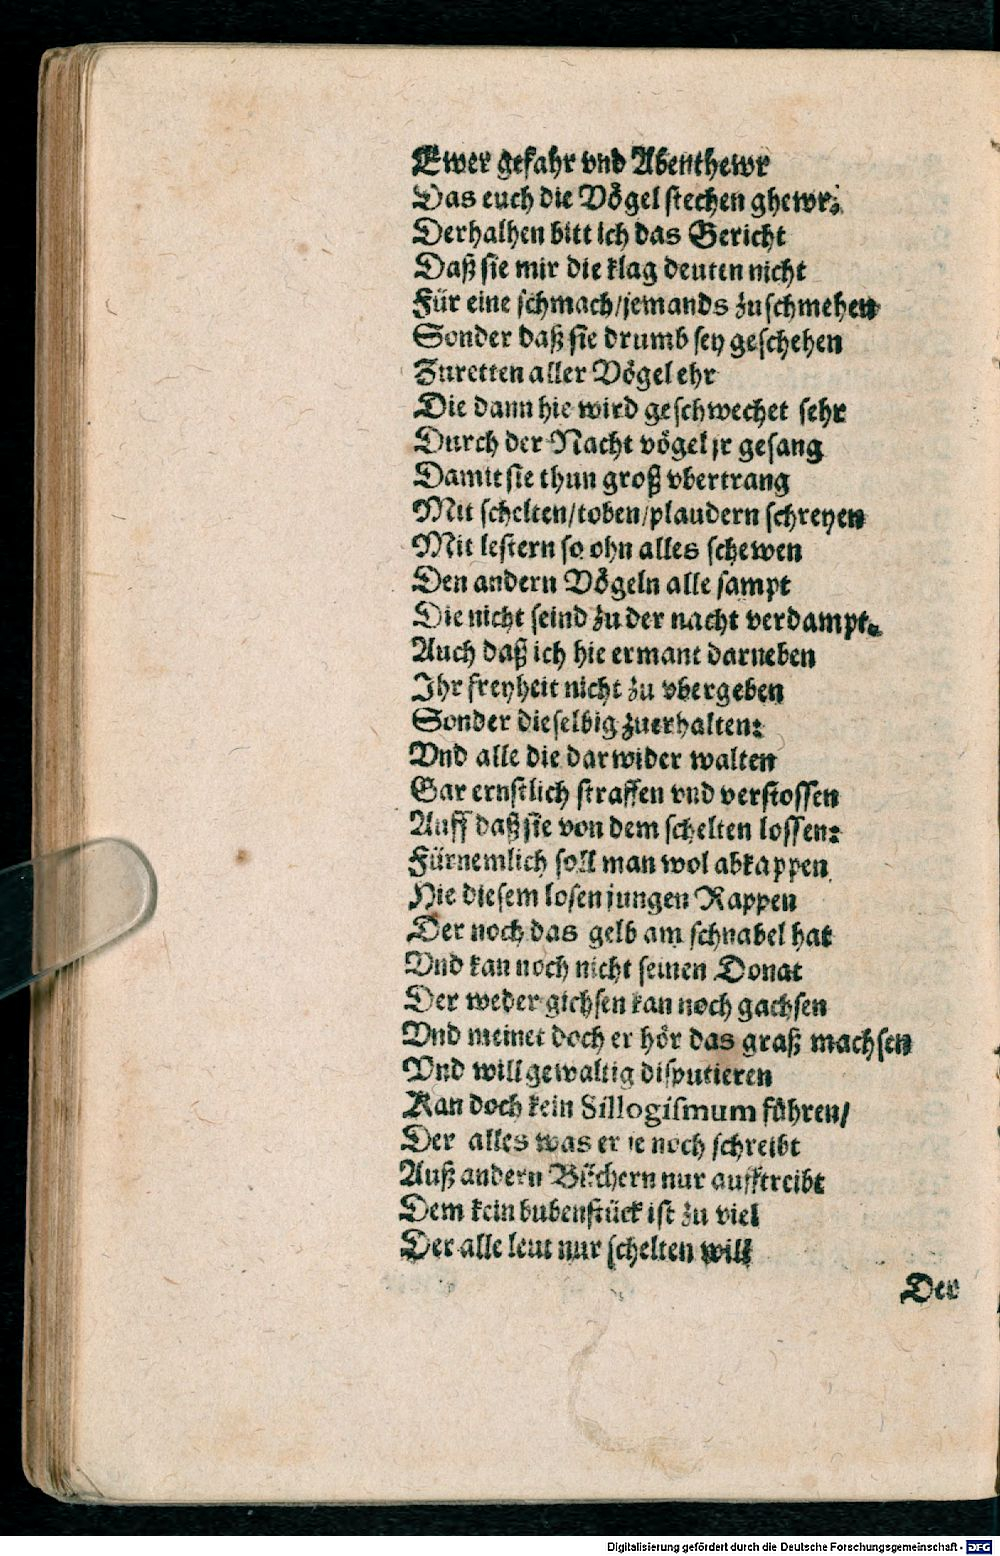 Ewer gefahr vnd Abenthewr
Das euch die Vögel stechen ghewr:
Derhalhen bitt ich das Gericht
Daß sie mir die klag deuten nicht
Für eine schmach/jemands zuschmehen
Sonder daß sie drumb sey geschehen
Zuretten aller Vögel ehr
Die dann hie wird geschwechet sehr
Durch der Nacht vögel jr gesang
Damit sie thun groß vbertrang
Mit schelten/toben/plaudern schreyen
Mit lestern so ohn alles schewen
Den andern Vögeln alle sampt
Die nicht seind zu der nacht verdampt.
Auch daß ich hie ermant darneben
Ihr freyheit nicht zu vbergeben
Sonder dieselbig zuerhalten:
Vnd alle die darwider walten
Gar ernstlich straffen vnd verstossen
Auff daß sie von dem schelten lossen:
Fürnemlich soll man wol abkappen
Hie diesem losen jungen Rappen
Der noch das gelb am schnabel hat
Vnd kan noch nicht seinen Donat
Der weder gichsen kan noch gachsen
Vnd meinet doch er hör das graß machsen
Vnd will gewaltig disputieren
Kan doch kein Sillogismum führen/
Der alles was er ie noch schreibt
Auß andern Büchern nur aufftreibt
Dem kein bubenstück ist zu viel
Der alle leut nur schelten will
Der
Digitalisierung gefördert durch die Deutsche Forschungsgemeinschaft - DFG